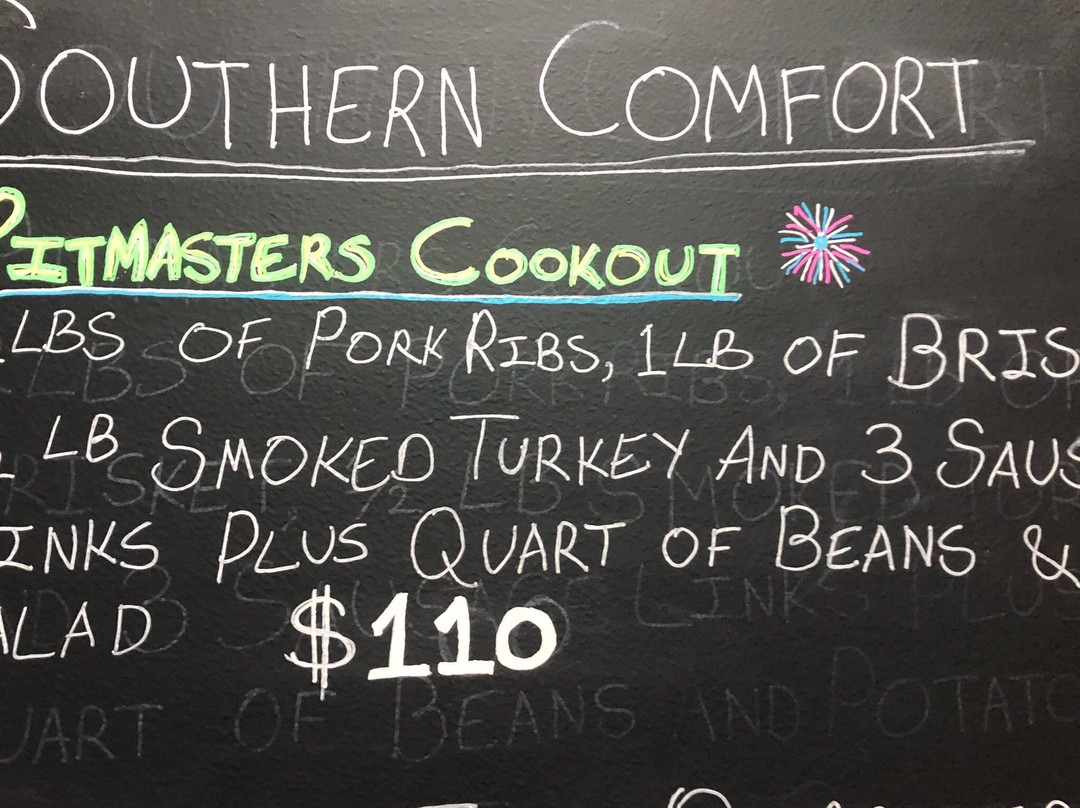 SOUTHERN COMFORT
PITMASTERS COOKOUT
LBS OF PORK RIBS, 1LB OF BRIS
LB SMOKED TURKEY AND 3 SAUS
INKS PLUS QUART OF BEANS &
ALAD $110
UART OF BEANS AND POTATO